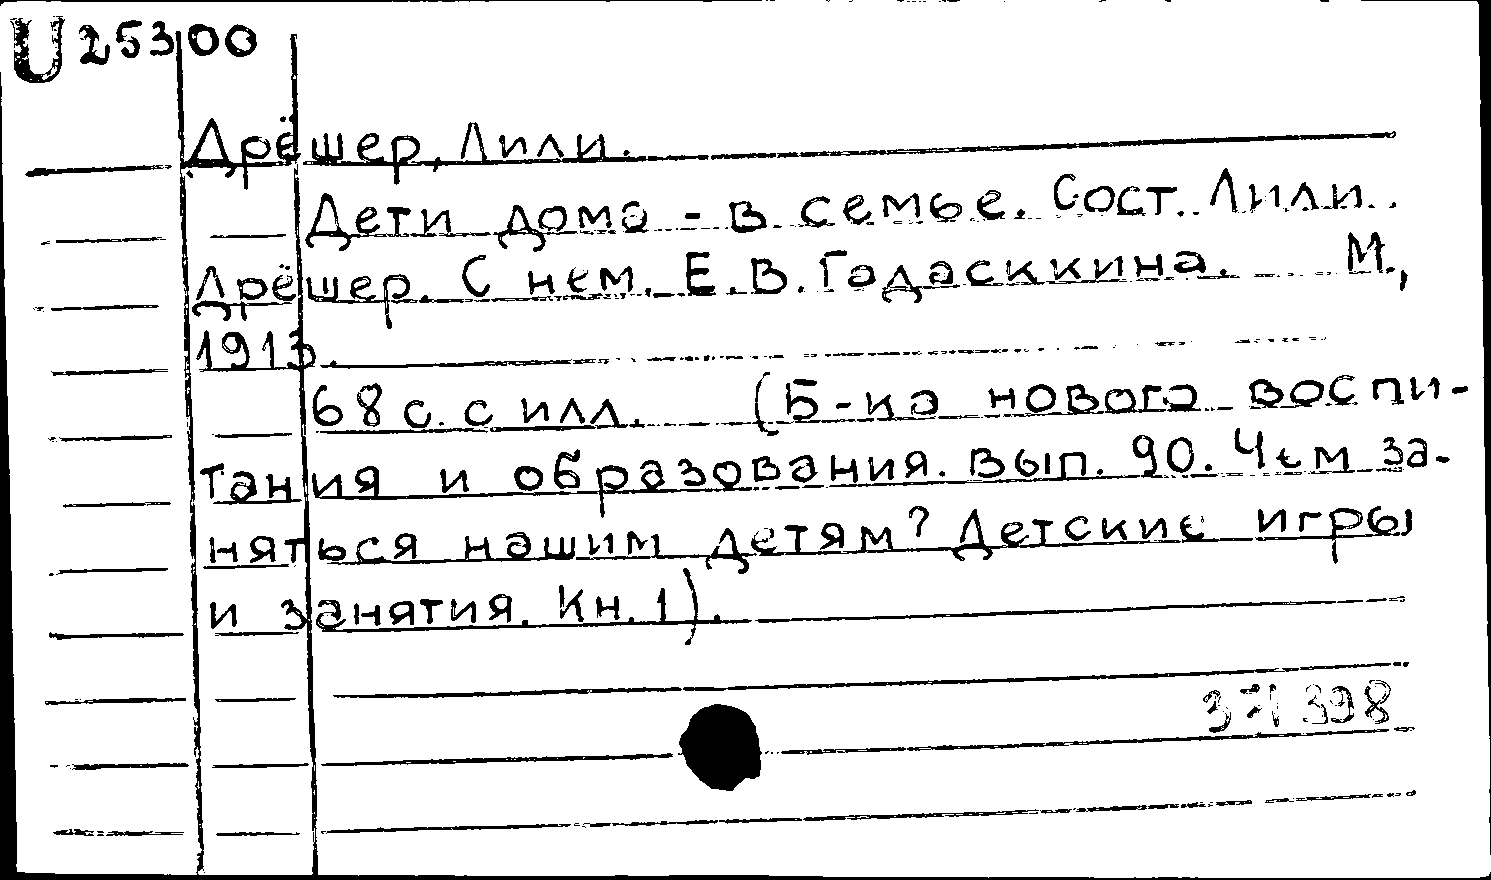 U 25300
Дрёшер, Лили.
Дети дома - в семье. Сост. Лили
Дрёшер. С нем. Е.В. Гадасккина. М.,
1913.
68 с. с илл. (Б-ка нового воспи-
тания и образования. Вып. 90. Чем за-
няться нашим детям? Детские игры
и занятия. Кн. 1).
371 398